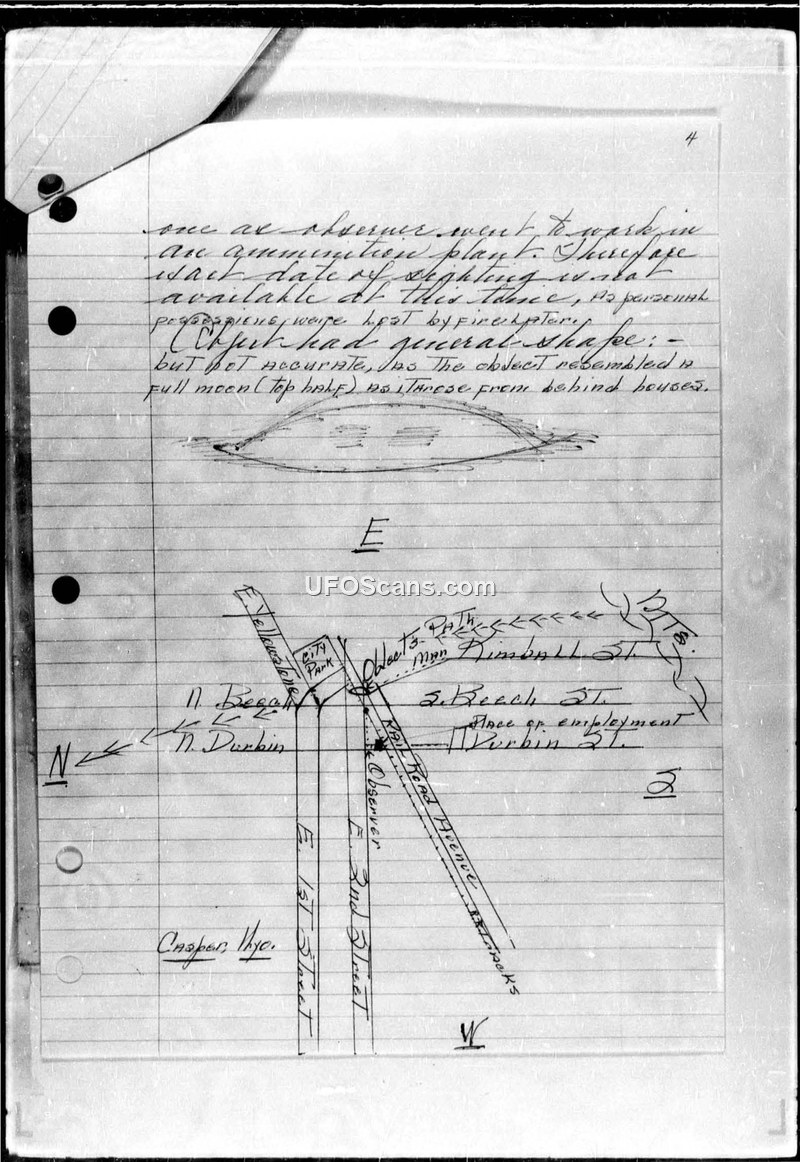 4
one as observer went to work in
an ammunition plant. Therefore
exact date of sighting is not
available at this time, as personal
possessions were lost by fire later.
Object had general shape: -
but not accurate, as the object resembled a
full moon (top half) as it arose from behind houses.
E
UFOScans.com
E. Yellowstone
City
Park
Object's PATH
MAN
Kimball ST.
MTS.
N. Beech
S. Beech ST.
Place of employment
N. Durbin
Durbin ST.
N
S
Observer
Rail Road Avenue
E. 1st Street
E. 2nd Street
R.R. Tracks
Casper, Wyo.
W